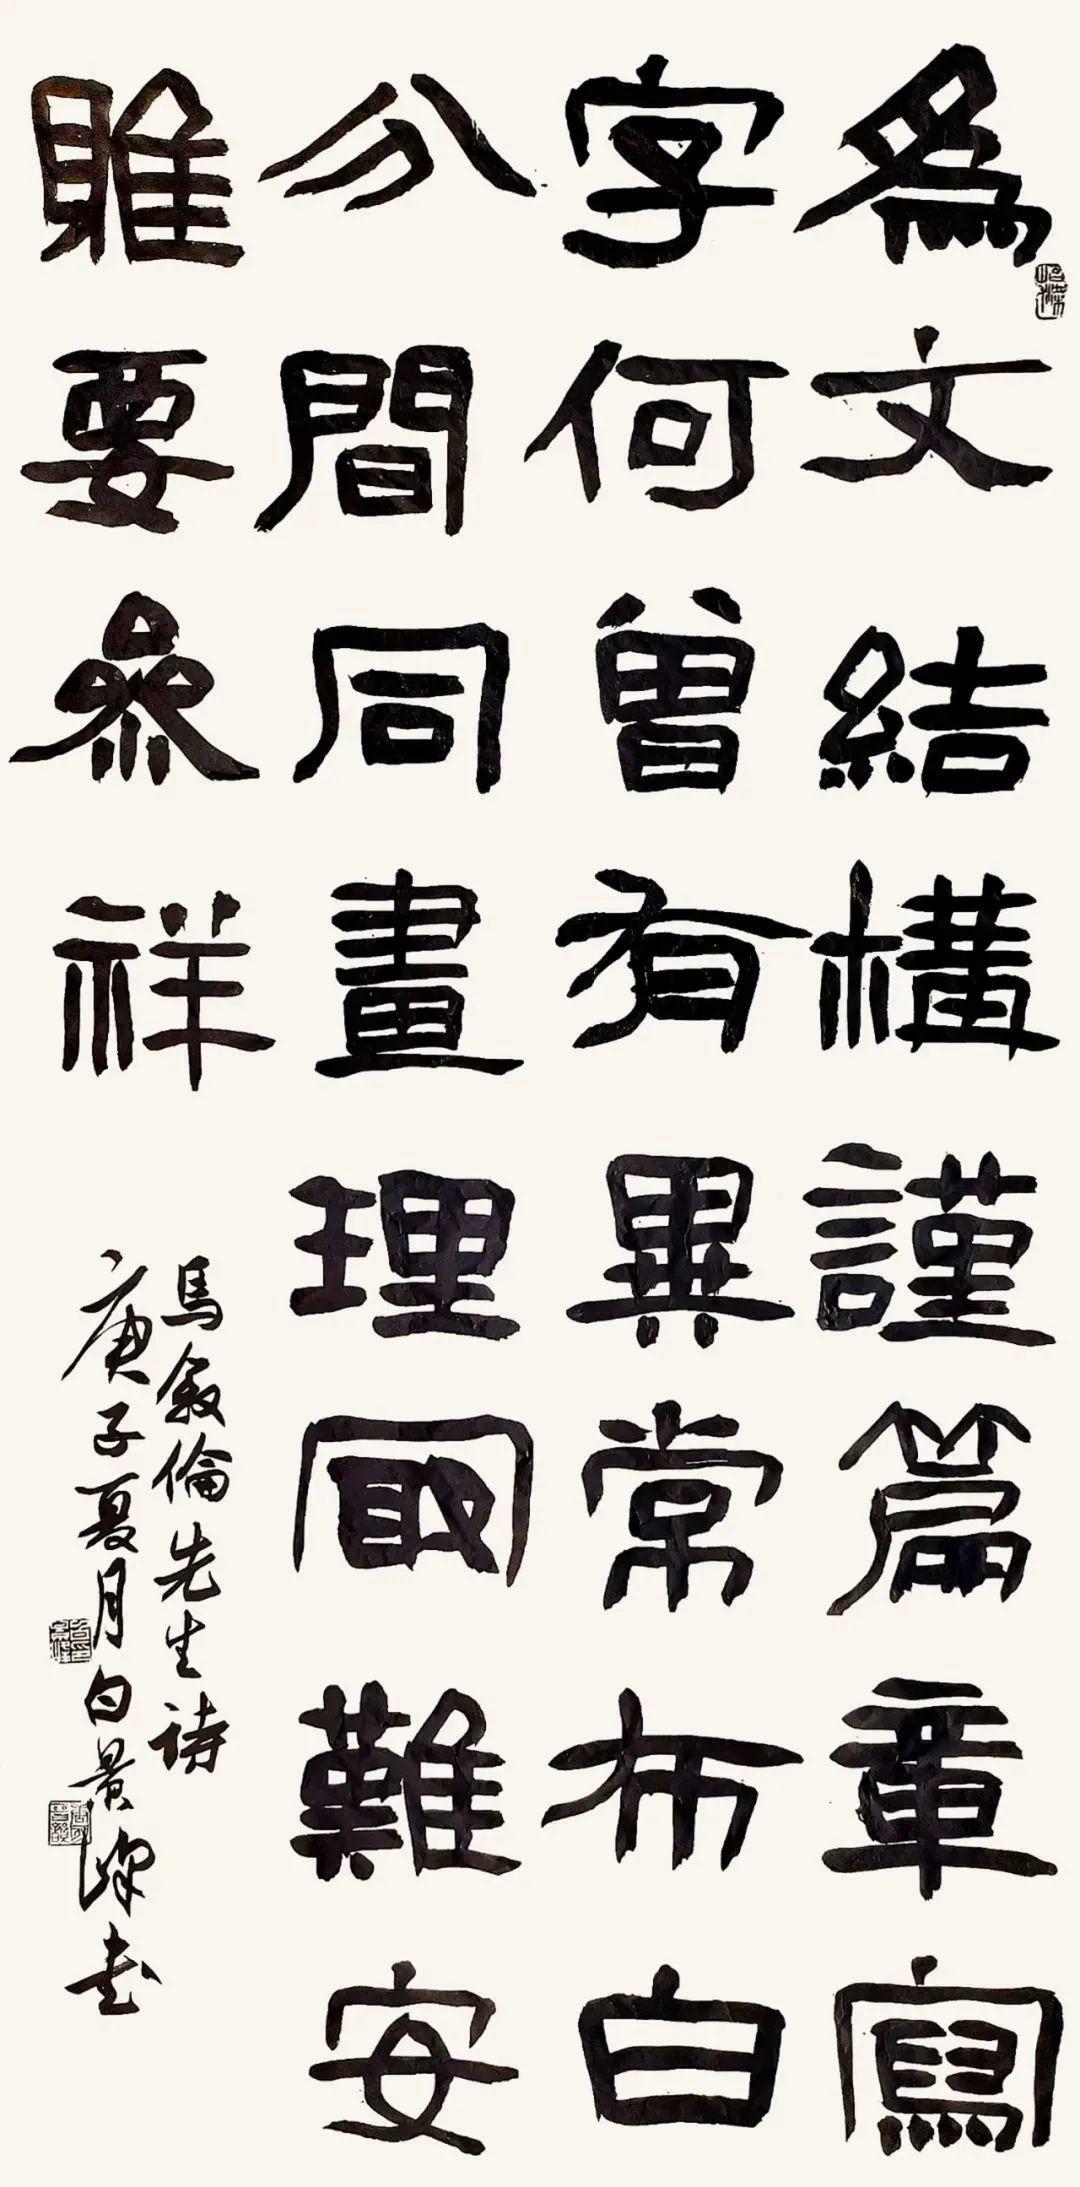 爲文結構謹篇章寫
字何曾有異常布白
分間同畫理冣難安
雅要參祥
馬叙倫先生詩
庚子夏月白景峰書